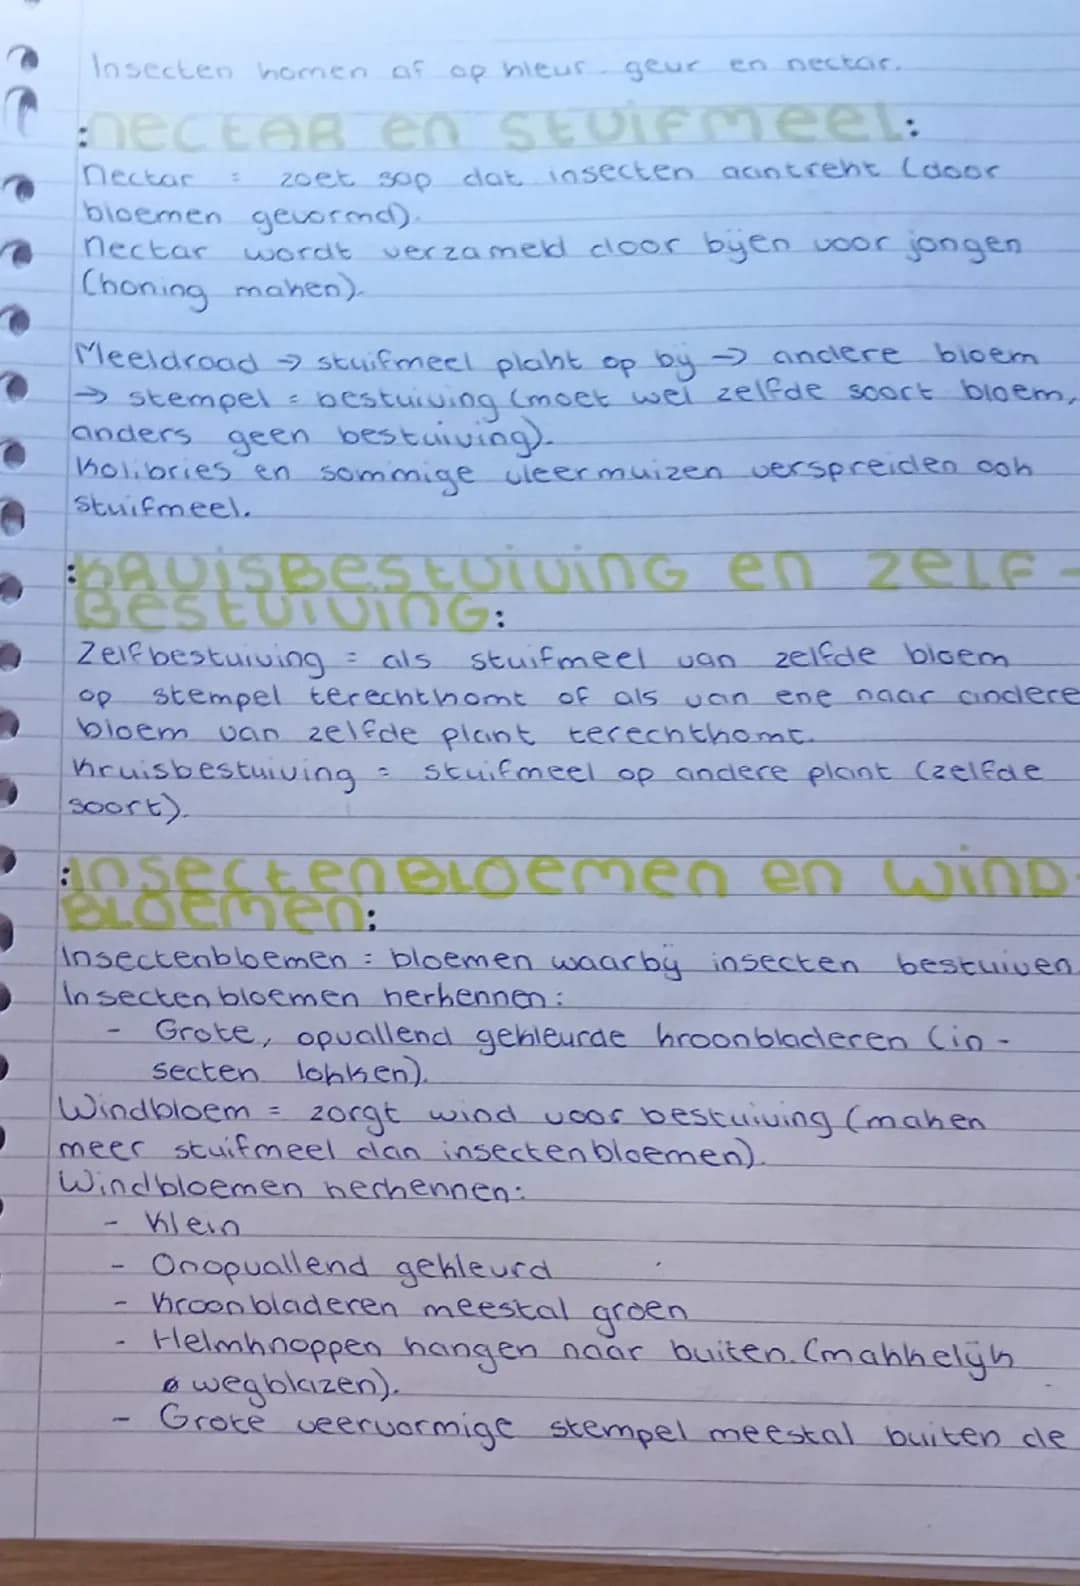 Insecten komen af op kleur. geur en nectar.
:nectar en stuifmeel:
nectar = zoet sap dat insecten aantrekt (door
bloemen gevormd).
nectar wordt verzameld door bijen voor jongen
(honing maken).
Meeldraad → stuifmeel plakt op bij → andere bloem
→ stempel = bestuiving (moet wel zelfde soort bloem,
anders geen bestuiving).
Kolibries en sommige vleermuizen verspreiden ook
stuifmeel.
:kruisbestuiving en zelf-
bestuiving:
Zelfbestuiving = als stuifmeel van zelfde bloem
op stempel terechtkomt of als van ene naar andere
bloem van zelfde plant terechtkomt.
Kruisbestuiving = stuifmeel op andere plant (zelfde
soort).
:insectenbloemen en wind-
bloemen:
Insectenbloemen = bloemen waarbij insecten bestuiven
Insectenbloemen herkennen:
- Grote, opvallend gekleurde kroonbladeren (in-
secten lokken).
Windbloem = zorgt wind voor bestuiving (maken
meer stuifmeel dan insectenbloemen).
Windbloemen herkennen:
- Klein
- Onopvallend gekleurd
- Kroonbladeren meestal groen
- Helmknoppen hangen naar buiten. (makkelijk
wegblazen).
- Grote veervormige stempel meestal buiten de